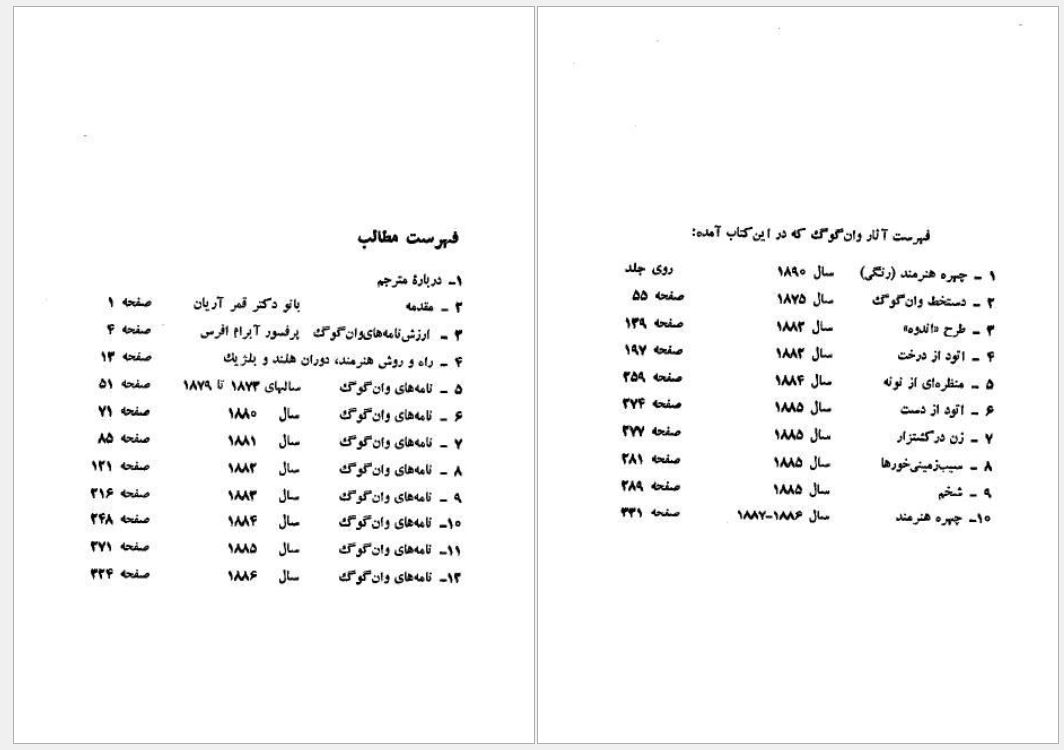 فهرست آثار وان‌گوگ که در این کتاب آمده:
۱ ــ چهره هنرمند (رنگی) سال ۱۸۹۰ روی جلد
۲ ــ دستخط وان‌گوگ سال ۱۸۷۵ صفحه ۵۵
۳ ــ طرح «اندوه» سال ۱۸۸۲ صفحه ۱۳۹
۴ ــ اتود از درخت سال ۱۸۸۲ صفحه ۱۹۷
۵ ــ منظره‌ای از نونه سال ۱۸۸۴ صفحه ۲۵۹
۶ ــ اتود از دست سال ۱۸۸۵ صفحه ۲۷۴
۷ ــ زن در گشتزار سال ۱۸۸۵ صفحه ۲۷۷
۸ ــ سیب‌زمینی‌خورها سال ۱۸۸۵ صفحه ۲۸۱
۹ ــ شخم سال ۱۸۸۵ صفحه ۲۸۹
۱۰ــ چهره هنرمند سال ۱۸۸۶-۱۸۸۷ صفحه ۳۳۱
فهرست مطالب
۱ــ دربارهٔ مترجم
۲ ــ مقدمه بانو دکتر قمر آریان صفحه ۱
۳ ــ ارزش نامه‌های وان‌گوگ پرفسور آبرام افرس صفحه ۴
۴ ــ راه و روش هنرمند، دوران هلند و بلژیک صفحه ۱۳
۵ ــ نامه‌های وان‌گوگ سالهای ۱۸۷۳ تا ۱۸۷۹ صفحه ۵۱
۶ ــ نامه‌های وان‌گوگ سال ۱۸۸۰ صفحه ۷۱
۷ ــ نامه‌های وان‌گوگ سال ۱۸۸۱ صفحه ۸۵
۸ ــ نامه‌های وان‌گوگ سال ۱۸۸۲ صفحه ۱۲۱
۹ ــ نامه‌های وان‌گوگ سال ۱۸۸۳ صفحه ۲۱۶
۱۰ــ نامه‌های وان‌گوگ سال ۱۸۸۴ صفحه ۲۴۸
۱۱ــ نامه‌های وان‌گوگ سال ۱۸۸۵ صفحه ۲۷۱
۱۲ــ نامه‌های وان‌گوگ سال ۱۸۸۶ صفحه ۳۲۴